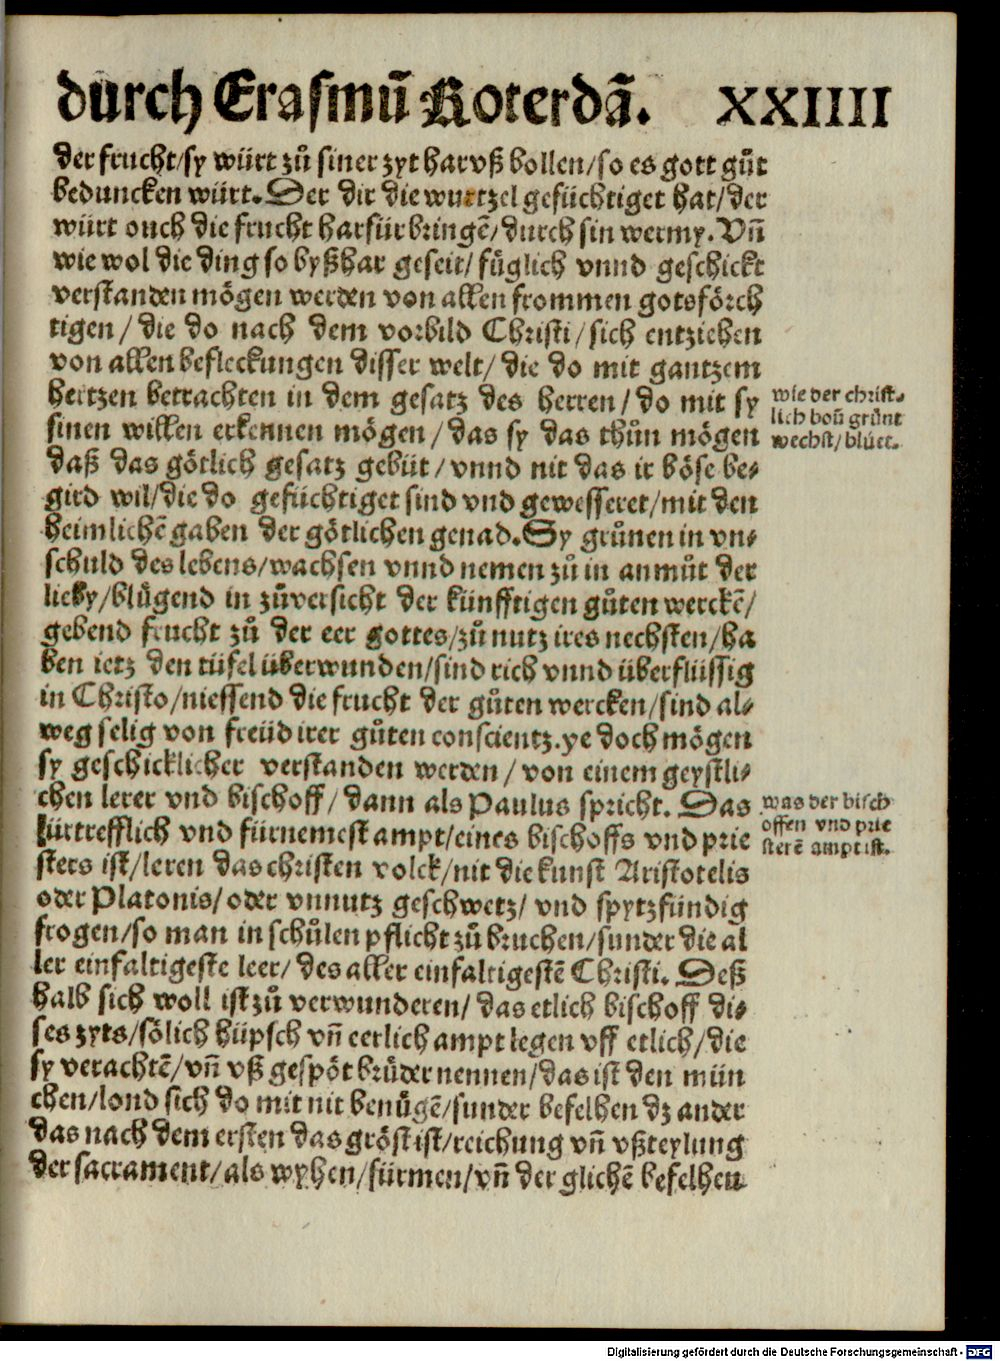 durch Erasmū Roterdā. XXIIII
der frucht/sy würt zů siner zyt harvß bollen/so es gott gůt
beduncken würt. Der dir die wurtzel gefüchtiget hat/der
würt ouch die frucht harfür bringē/durch sin wermy. Vñ
wie wol die ding so byßhar geseit/ füglich vnnd geschickt
verstanden mögen werden von allen frommen gotsförch
tigen/ die do nach dem vorbild Christi/ sich entziehen
von allen befleckungen disser welt/ die do mit gantzem
hertzen betrachten in dem gesatz des herren/ do mit sy
sinen willen erkennen mögen/ das sy das thůn mögen
daß das götlich gesatz gebüt/ vnnd nit das ir böse be⸗
gird wil/die do gefüchtiget sind vnd gewesseret/mit den
heimlichē gaben der götlichen genad. Sy grůnen in vn⸗
schuld des lebens/wachsen vnnd nemen zů in anmůt der
lieby/blůgend in zůversicht der künfftigen gůten werckē/
gebend frucht zů der eer gottes/zů nutz ires nechsten/ha
ben ietz den tüfel überwunden/sind rich vnnd überflüssig
in Christo/niessend die frucht der gůten wercken/sind al⸗
weg selig von freüd irer gůten conscientz. ye doch mögen
sy geschicklicher verstanden werden/ von einem geystli⸗
chen lerer vnd bischoff/ dann als Paulus spricht. Das
fürtrefflich vnd fürnemest ampt/eines bischoffs vnd prie
sters ist/leren das christen volck/nit die kunst Aristotelis
oder Platonis/ oder vnnutz geschwetz/ vnd spytzfündig
frogen/so man in schůlen pflicht zů bruchen/sunder die al
ler einfaltigeste leer/ des aller einfaltigestē Christi. Deß
halb sich woll ist zů verwunderen/ das etlich bischoff di⸗
ses zyts/sölich hüpsch vñ eerlich ampt legen vff etlich/die
sy verachtē/vñ vß gespöt brůder nennen/das ist den mün
chen/lond sich do mit nit benůgē/sunder befelhen dz ander
das nach dem ersten das gröst ist/reichung vñ vßteylung
der sacrament/als wyhen/fürmen/vñ der glichē befelhen
wie der christ⸗
lich boū grůnt
wechst/blůet.
was der bisch
offen vnd prie
sterē ampt ist.
Digitalisierung gefördert durch die Deutsche Forschungsgemeinschaft - DFG